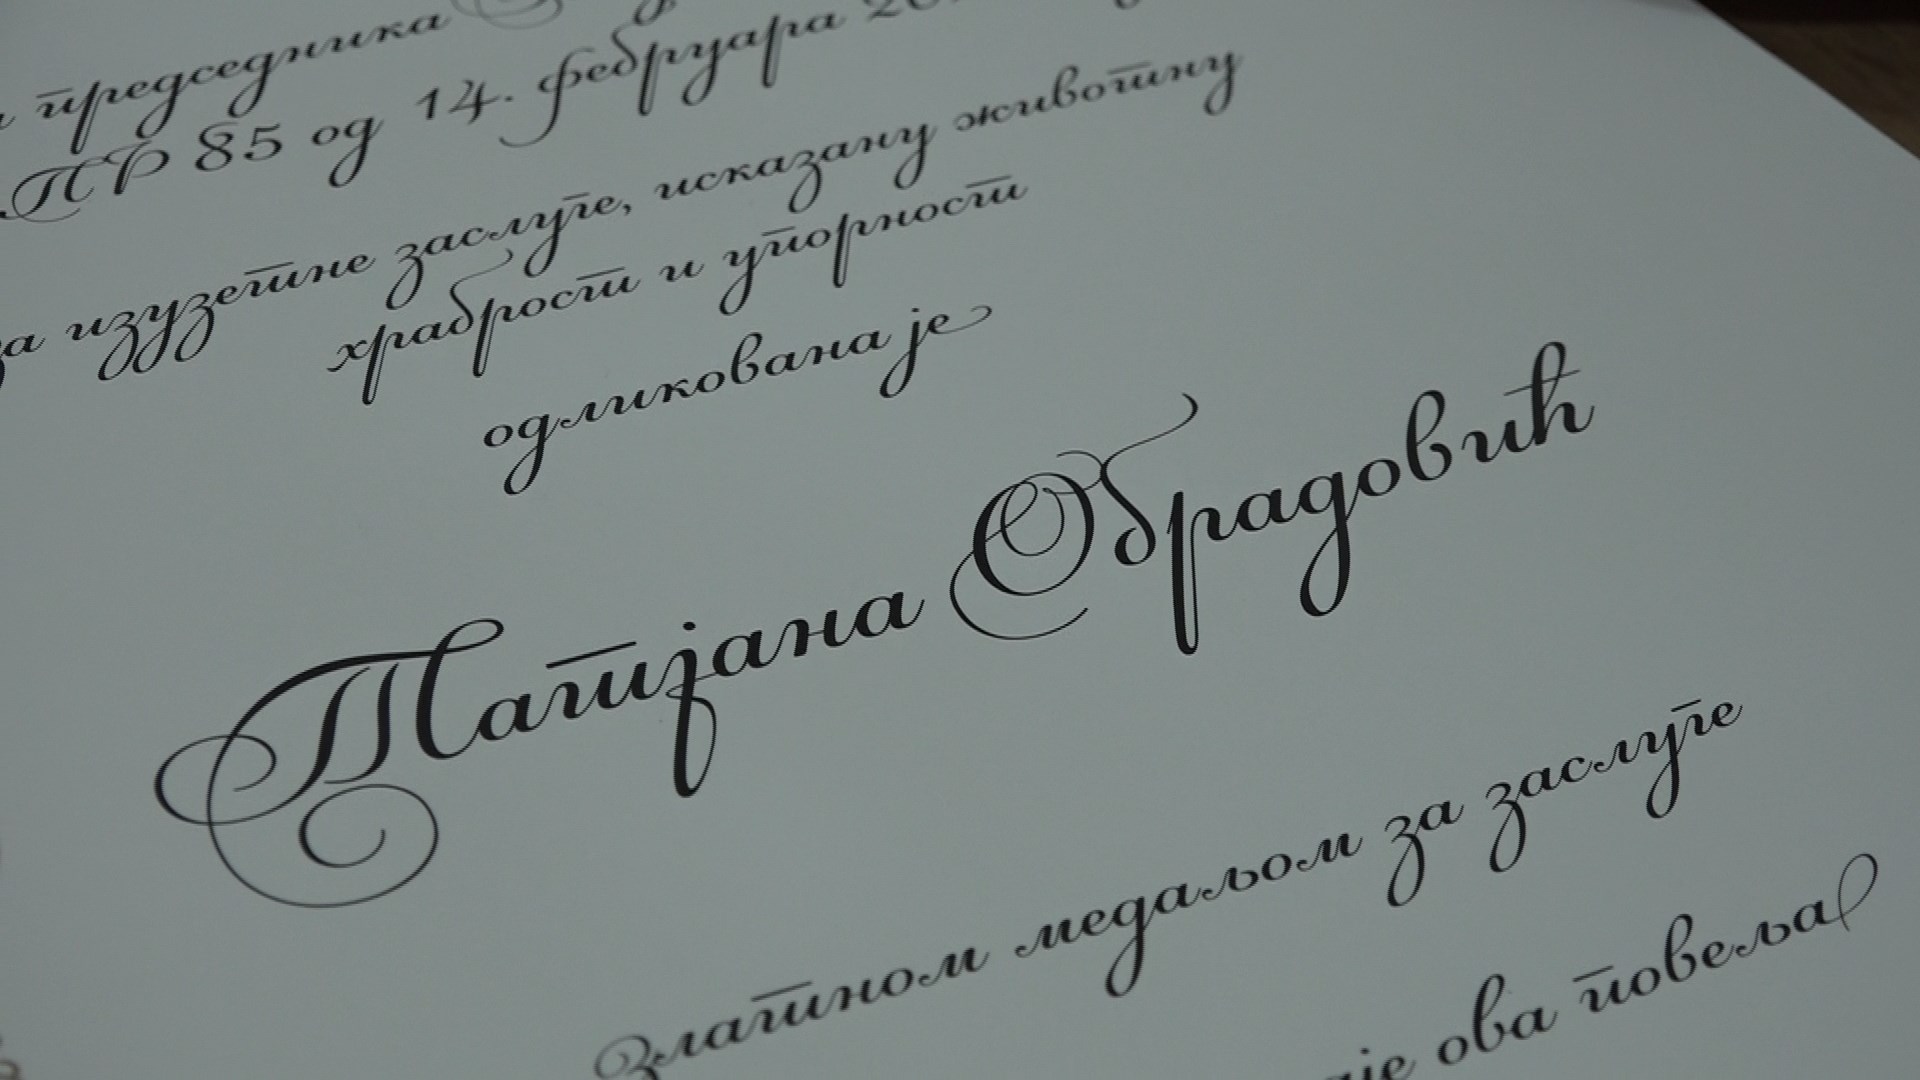 председника
ПР 85 од 14. фебруара
за изузетне заслуге, исказану животину
храброст и упорност
одликована је
Татјана Обрадовић
Златном медаљом за заслуге
ова повеља